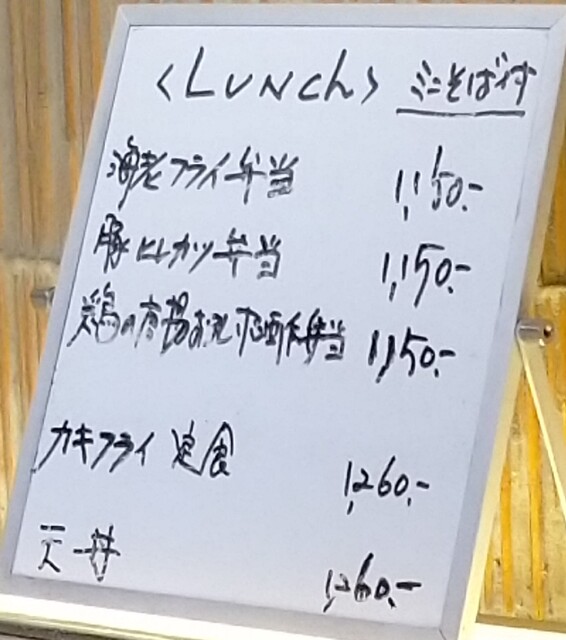 <LUNCh> ミニそば付
海老フライ弁当 1,150.-
豚ヒレカツ弁当 1,150.-
鶏の 弁当 1,150.-
カキフライ定食 1,260.-
天丼 1,260.-